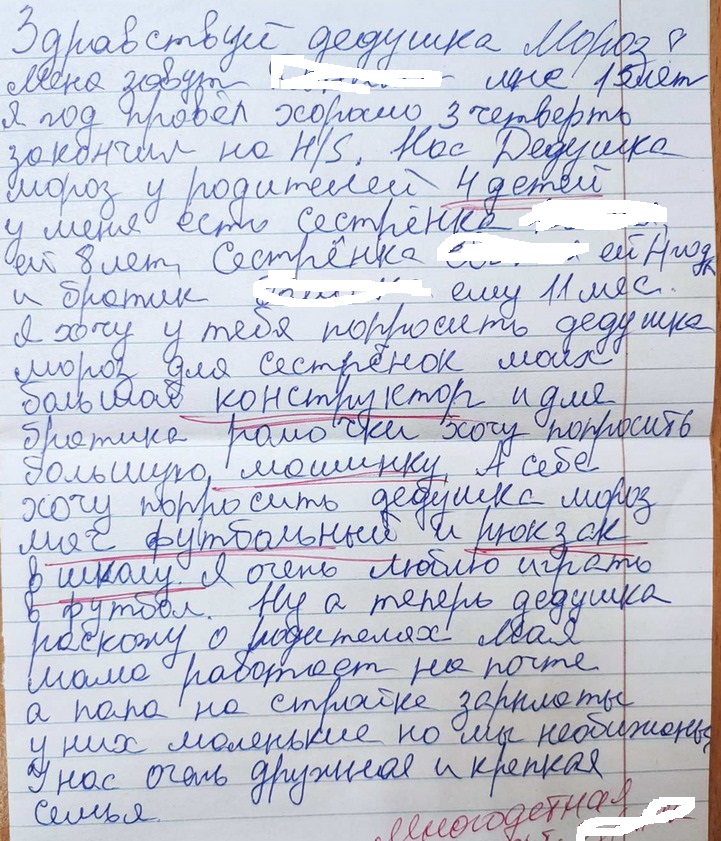 Здравствуй дедушка Мороз
Меня зовут мне 15лет
я год провёл хорошо 3 четверть
закончил на 4/5. Нас Дедушка
мороз у родителей 4 детей
у меня есть Сестрёнка
ей 8 лет, Сестрёнка ей 4 год
и братик ему 11 мес.
Я хочу у тебя попросить дедушка
мороз для сестрёнок моих
большой конструктор и для
братика хочу попросить
большую машинку. А себе
хочу попросить дедушка мороз
мяч футбольный и рюкзак
в школу. Я очень люблю играть
в футбол. Ну а теперь дедушка
раскожу о родителях Моя
мама работает на почте
а папа на стройке зарплаты
у них маленькие но мы необижаемы
У нас очень дружная и крепкая
семья.
Многодетная